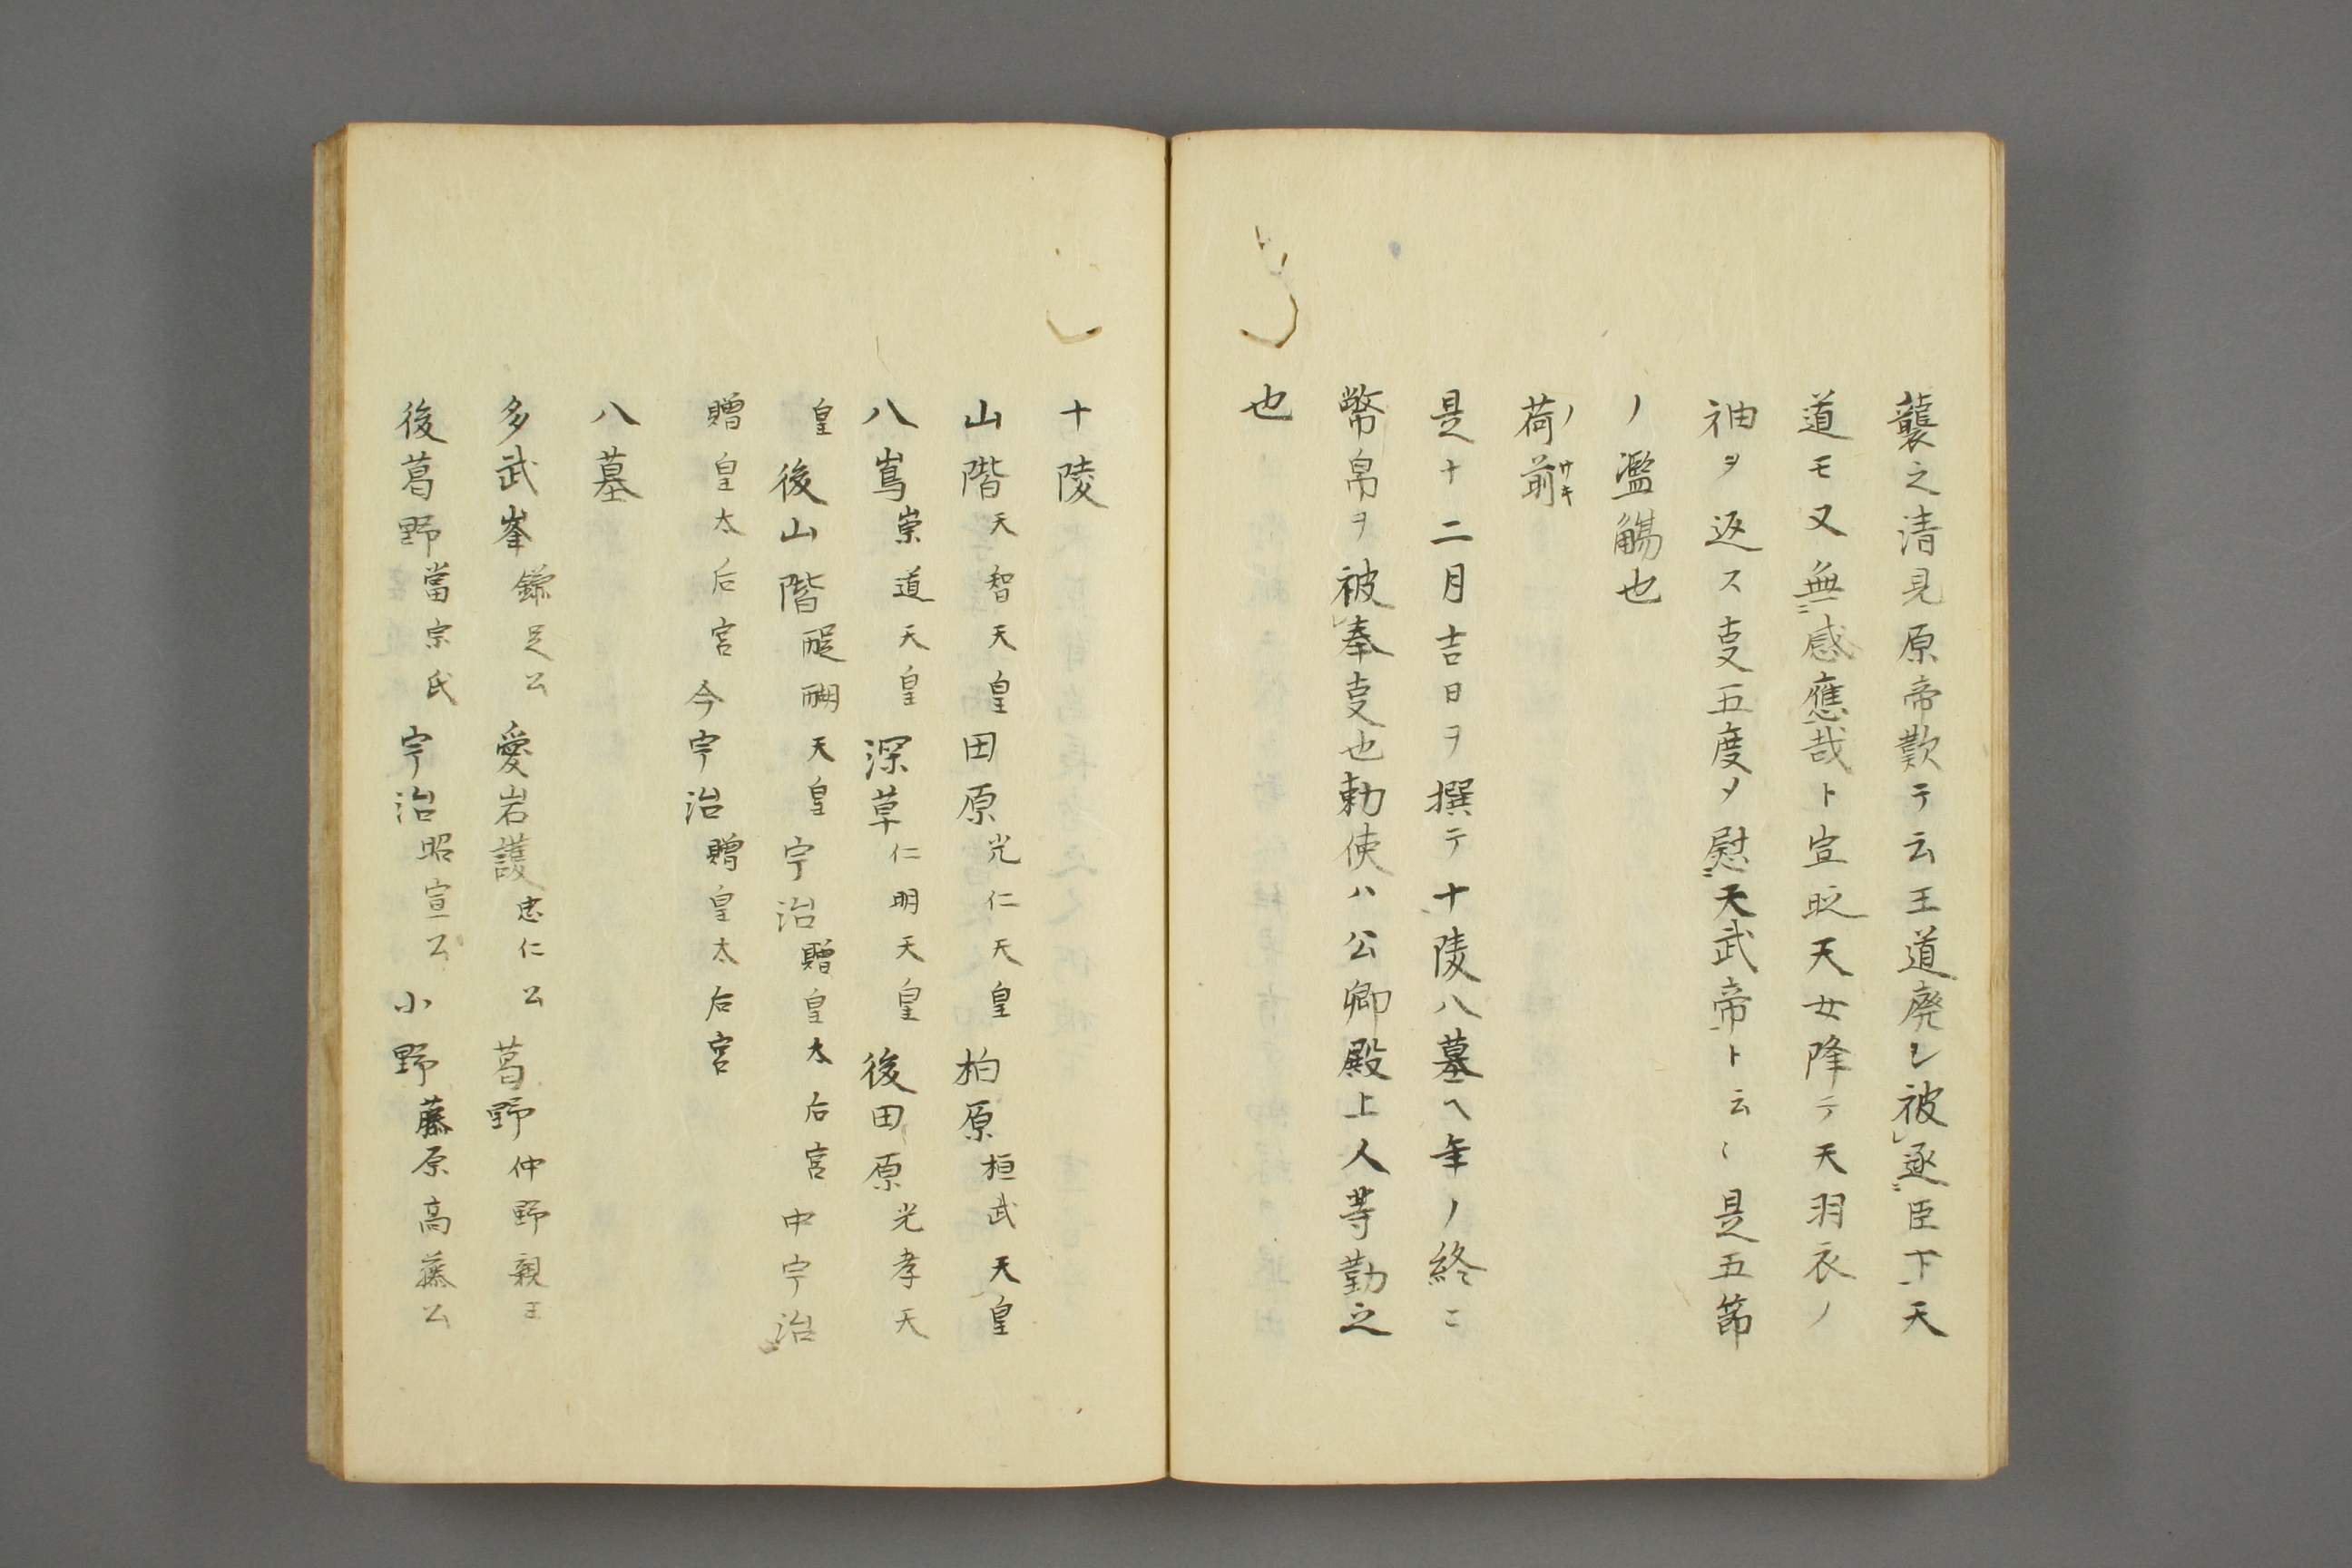 襲之清見原帝歎テ云王道廃レ被逐臣下天
道モ又無感應哉ト宣時天女降テ天羽衣ノ
袖ヲ返ス叓五度メ慰天武帝ト云〻是五節
ノ濫觴也
荷前
ノ サキ
是十二月吉日ヲ撰テ十陵八墓ヘ年ノ終ニ
幣帛ヲ被奉叓也勅使ハ公卿殿上人等勤之
也
十陵
山階天智天皇田原光仁天皇 柏原桓武天皇
八嶌崇道天皇 深草仁明天皇 後田原光孝天
皇 後山階醍醐天皇 宇治贈皇太后宮 中宇治
贈皇太后宮 今宇治贈皇太后宮
八墓
多武峯鎌足公 愛岩護忠仁公 葛野仲野親王
後葛野當宗氏 宇治昭宣公 小野藤原高藤公